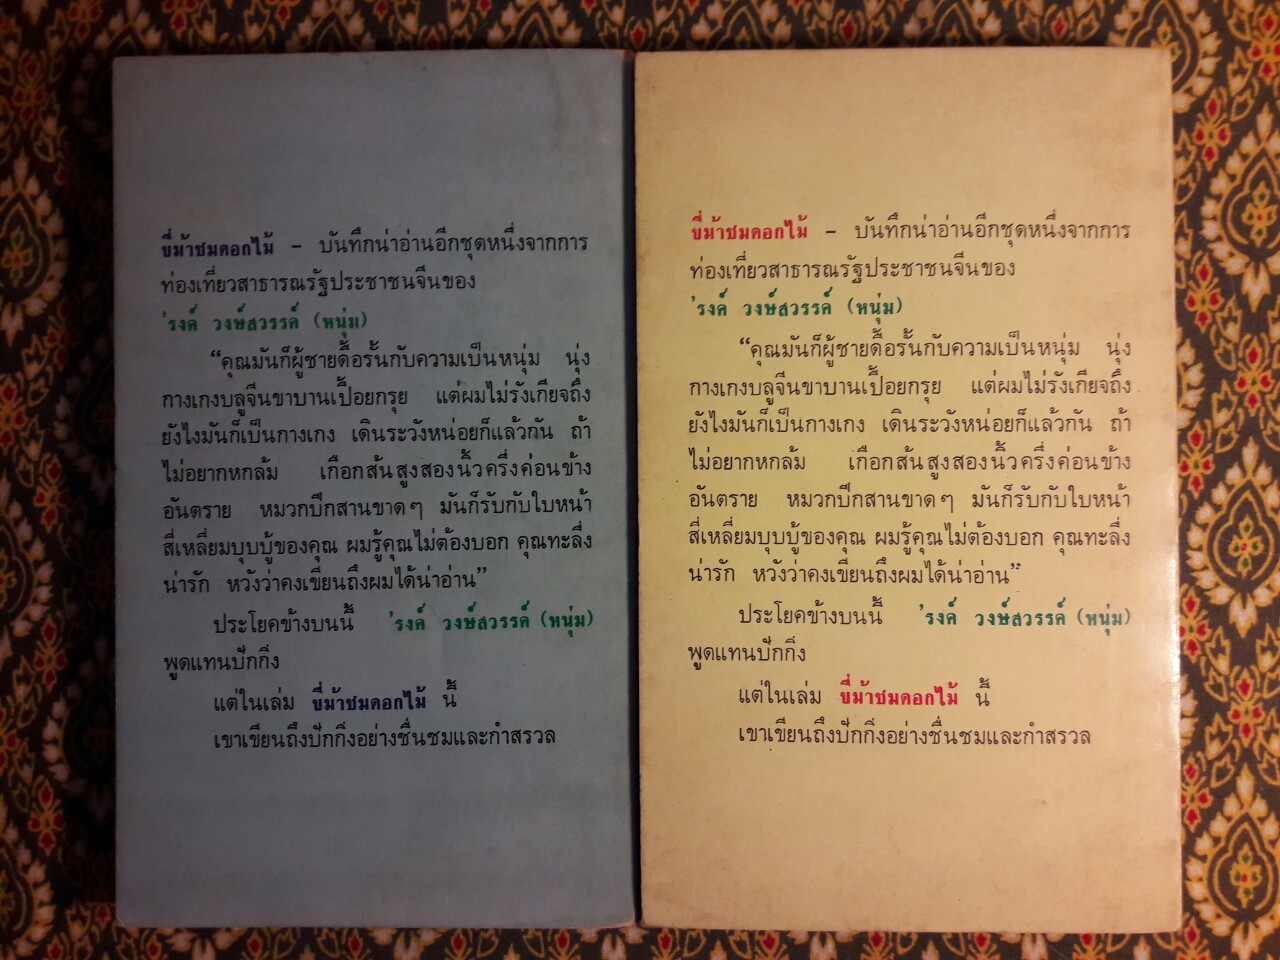 ขี่ม้าชมดอกไม้ – บันทึกน่าอ่านอีกชุดหนึ่งจากการ
ท่องเที่ยวสาธารณรัฐประชาชนจีนของ
'รงค์ วงษ์สวรรค์ (หนุ่ม)
“คุณมันก็ผู้ชายดื้อรั้นกับความเป็นหนุ่ม นุ่ง
กางเกงบลูจีนขาบานเปื่อยกรุย แต่ผมไม่รังเกียจถึง
ยังไงมันก็เป็นกางเกง เดินระวังหน่อยก็แล้วกัน ถ้า
ไม่อยากหกล้ม เกือกส้นสูงสองนิ้วครึ่งค่อนข้าง
อันตราย หมวกปีกสานขาดๆ มันก็รับกับใบหน้า
สี่เหลี่ยมบุบบู้ของคุณ ผมรู้คุณไม่ต้องบอก คุณทะลึ่ง
น่ารัก หวังว่าคงเขียนถึงผมได้น่าอ่าน”
ประโยคข้างบนนี้ 'รงค์ วงษ์สวรรค์ (หนุ่ม)
พูดแทนปักกิ่ง
แต่ในเล่ม ขี่ม้าชมดอกไม้ นี้
เขาเขียนถึงปักกิ่งอย่างชื่นชมและกำสรวล
ขี่ม้าชมดอกไม้ – บันทึกน่าอ่านอีกชุดหนึ่งจากการ
ท่องเที่ยวสาธารณรัฐประชาชนจีนของ
'รงค์ วงษ์สวรรค์ (หนุ่ม)
“คุณมันก็ผู้ชายดื้อรั้นกับความเป็นหนุ่ม นุ่ง
กางเกงบลูจีนขาบานเปื่อยกรุย แต่ผมไม่รังเกียจถึง
ยังไงมันก็เป็นกางเกง เดินระวังหน่อยก็แล้วกัน ถ้า
ไม่อยากหกล้ม เกือกส้นสูงสองนิ้วครึ่งค่อนข้าง
อันตราย หมวกปีกสานขาดๆ มันก็รับกับใบหน้า
สี่เหลี่ยมบุบบู้ของคุณ ผมรู้คุณไม่ต้องบอก คุณทะลึ่ง
น่ารัก หวังว่าคงเขียนถึงผมได้น่าอ่าน”
ประโยคข้างบนนี้ 'รงค์ วงษ์สวรรค์ (หนุ่ม)
พูดแทนปักกิ่ง
แต่ในเล่ม ขี่ม้าชมดอกไม้ นี้
เขาเขียนถึงปักกิ่งอย่างชื่นชมและกำสรวล